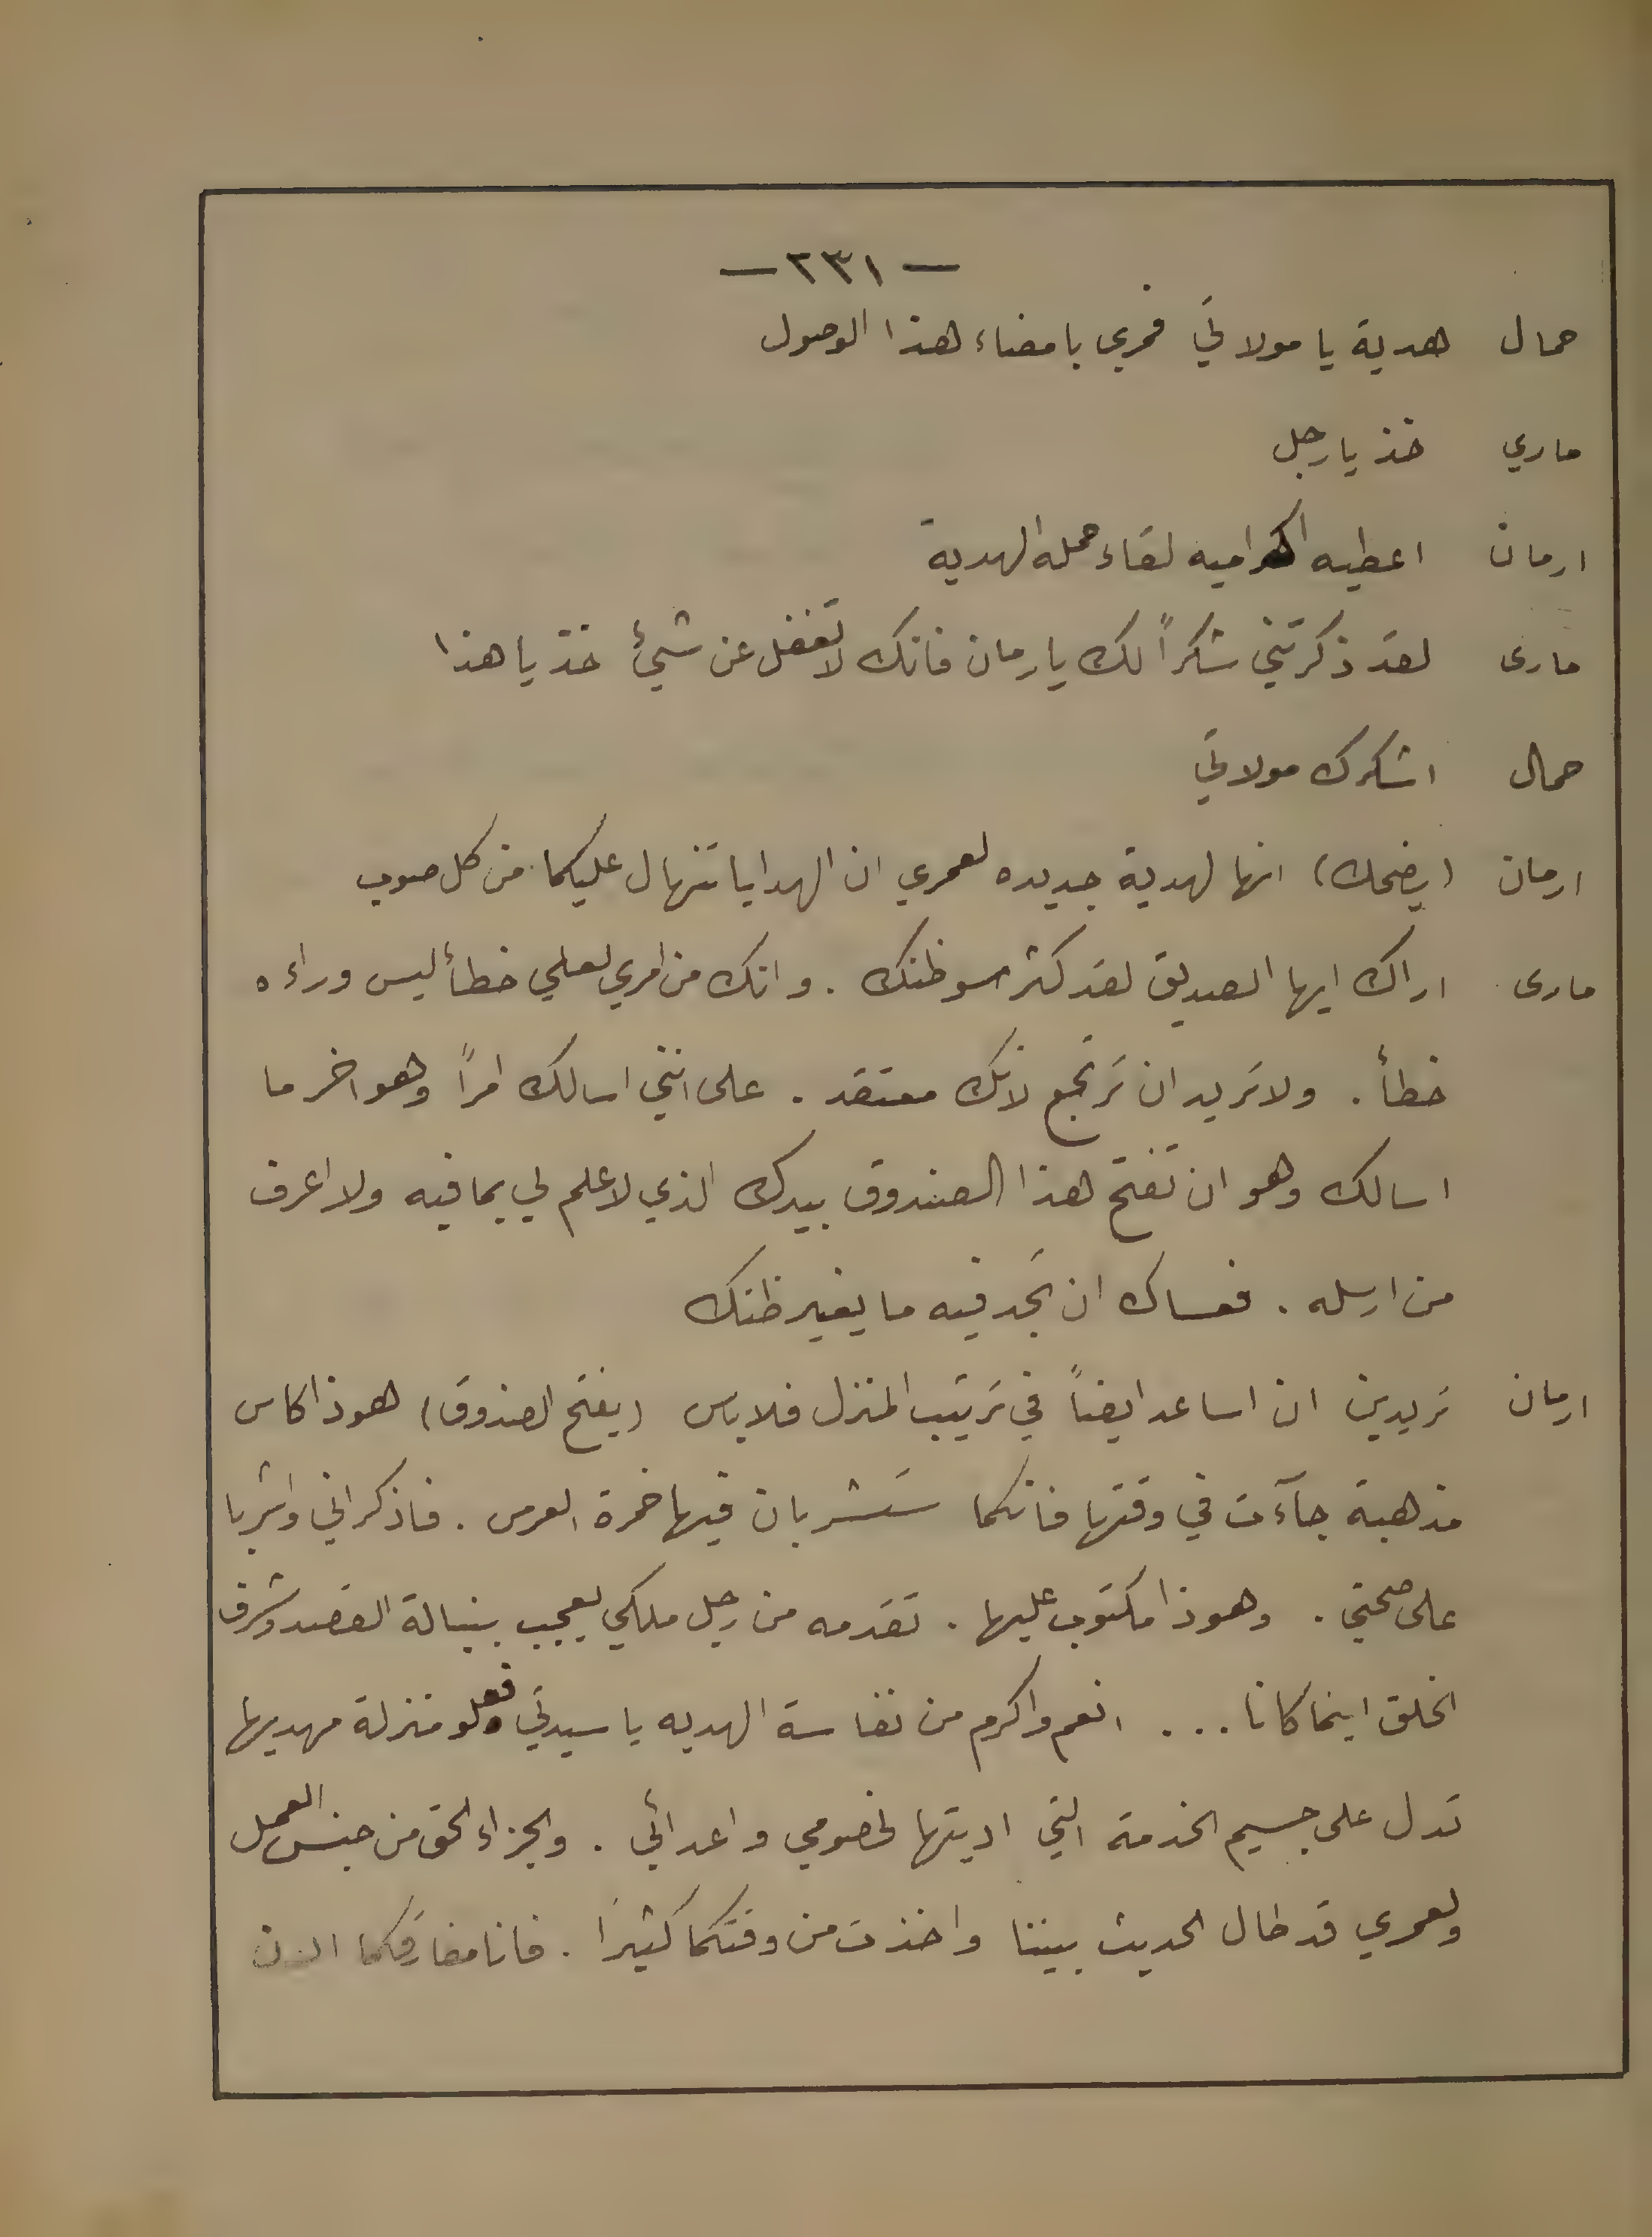 — ٢٣١ —
حمال هدية يا مولاتي فمري بامضاء هذا الوصول
ماري خذ يا رجل
ارمان اعطيه اكراميه لقاء حمله الهدية
مارى لقد ذكرتني شكراً لك يا رمان فانك لا تغفل عن شيئ خذ يا هذا
حمال اشكرك مولاتي
ارمان (يضحك) انها لهدية جديده لعمري ان الهدايا تنهال عليكما من كل صوب
مارى اراك ايها الصديق لقد كثر سو ظنك . وانك من امري لعلي خطأ ليس وراءه
خطأ . ولا تريد ان ترتجع لانك معتقد . على انني اسالك امراً وهو اخر ما
اسالك وهو ان تفتح هذا الصندوق بيدك الذي لا علم لي بما فيه ولا اعرف
من ارسله . فعساك ان تجد فيه ما يغير ظنك
ارمان تريدين ان اساعد ايضاً في ترتيب المنزل فلا باس (يفتح الصندوق) هوذا كاس
مذهبة جآءت في وقتها فانكما ستشربان فيها خمرة العرس . فاذكراني واشربا
على صحتي . وهوذا مكتوب عليها . تقدمه من رجل ملكي يعجب بنبالة القصد وشرف
الخلق اينما كانا ... انعم واكرم من نفاسة الهديه يا سيدتي فعلو منزلة مهديها
تدل على جسيم الخدمة التي اديتها لخصومي واعدائي . والجزاء الحق من جنس العمل
ولعمري قد طال الحديث بيننا واخذت من وقتكما كثيراً . فانا مفارقكما الان